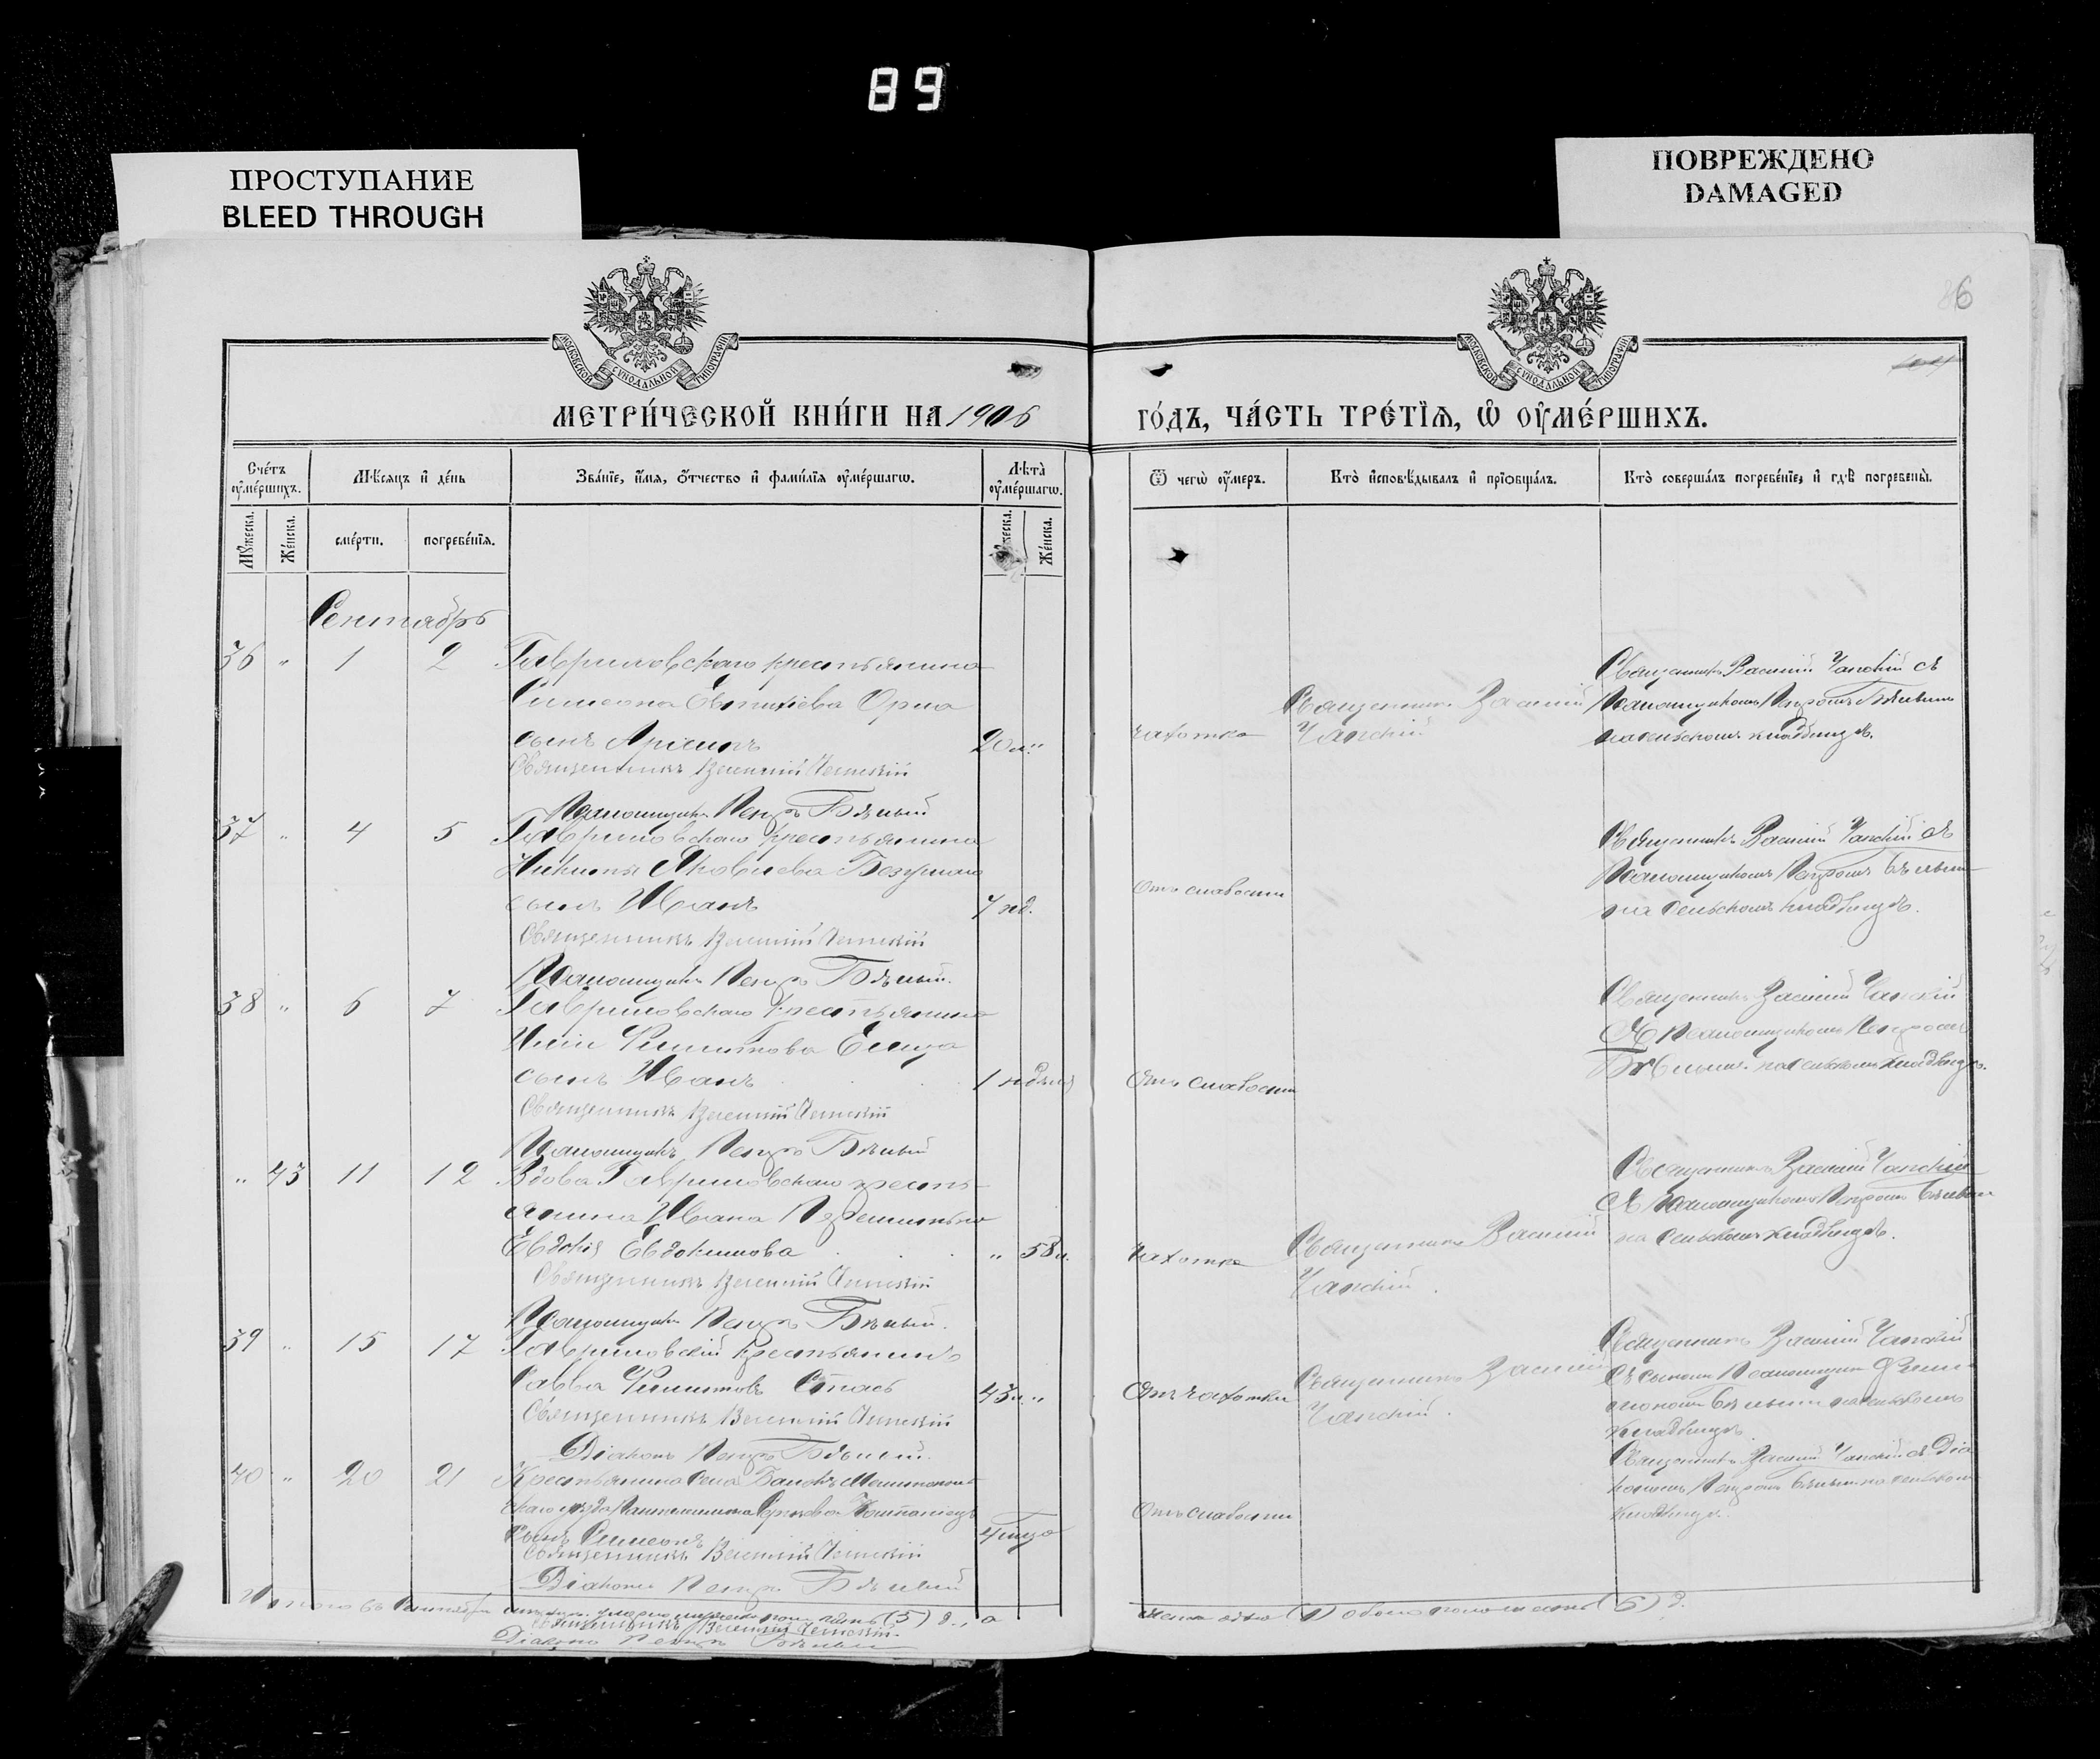 89
ПРОСТУПАНИЕ
BLEED THROUGH
ПОВРЕЖДЕНО
DAMAGED
86
МОСКОВСКОЙ СѴНОДАЛЬНОЙ ТИПОГРАФІИ
МОСКОВСКОЙ СѴНОДАЛЬНОЙ ТИПОГРАФІИ
МЕТРИ́ЧЕСКОЙ КНИ́ГИ НА 1906
ГО́ДЪ, ЧА́СТЬ ТРЕ́ТІѦ, Ѽ ОУМЕ́РШИХЪ.
Сче́тъ оумéршихъ.
Мѣсяцъ и де́нь
Зва́нїе, и́мѧ, о́тчество и фами́лїѧ оуме́ршагѡ.
Лѣта̀ оуме́ршагѡ.
Ѿ чегѡ̀ оу́меръ.
Кто̀ исповѣ́дывалъ и прїѡбща́лъ.
Кто̀ соверша́лъ погребе́нїе, и гдѣ̀ погребены̀.
Мꙋ́жеска.
Же́нска.
сме́рти.
погребе́нїѧ.
Мꙋ́жеска.
Же́нска.
Сентябрь
36 " 1 2 Гавриловскаго крестьянина
Симеона Евтихіева Орла
сынъ Арсенъ 20 л. "
Священникъ Василій Чапскій
Псаломщикъ Петръ Бѣлый
чахотка
Священникъ Василій
Чапскій
Священникъ Василій Чапскій съ
Псаломщикомъ Петромъ Бѣлымъ
на сельскомъ кладбищѣ.
37 " 4 5 Гавриловскаго крестьянина
Никиты Яковлева Безуглаго
сынъ Иванъ 7 нд.
Священникъ Василій Чапскій
Псаломщикъ Петръ Бѣлый.
Отъ слабости
Священникъ Василій Чапскій съ
Псаломщикомъ Петромъ Бѣлымъ
на сельскомъ кладбищѣ.
38 " 6 7 Гавриловскаго крестьянина
Иліи Филиппова
сынъ Иванъ 1
Священникъ Василій Чапскій
Псаломщикъ Петръ Бѣлый
Отъ слабости
Священникъ Василій Чапскій
съ Псаломщикомъ Петромъ
Бѣлымъ на сельскомъ кладбищѣ.
" 43 11 12 Вдова Гавриловскаго кресть-
янина Ивана
Евдокія Евдокимова " 58 л.
Священникъ Василій Чапскій
Псаломщикъ Петръ Бѣлый.
Чахотка
Священникъ Василій
Чапскій.
Священникъ Василій Чапскій
съ Псаломщикомъ Петромъ Бѣлымъ
на сельскомъ кладбищѣ.
39 " 15 17 Гавриловскій крестьянинъ
Савва Филипповъ 43 л. "
Священникъ Василій Чапскій
Діаконъ Петръ Бѣлый.
Отъ чахотки
Священникъ Василій
Чапскій.
Священникъ Василій Чапскій
съ сыномъ Псаломщика
Бѣлымъ на сельскомъ
кладбищѣ.
40 " 20 21 Крестьянина села
сынъ Симеонъ 4
Священникъ Василій Чапскій
Діаконъ Петръ Бѣлый
Отъ слабости
Священникъ Василій Чапскій съ Діа
кономъ Петромъ Бѣлымъ на сельскомъ
кладбищѣ.
Итого въ Сентябрѣ умерло мужеска пола пять (5) д., а
женска одно (1) обоего пола шесть (6) д.
Священникъ Василій Чапскій.
Діаконъ Петръ Бѣлый